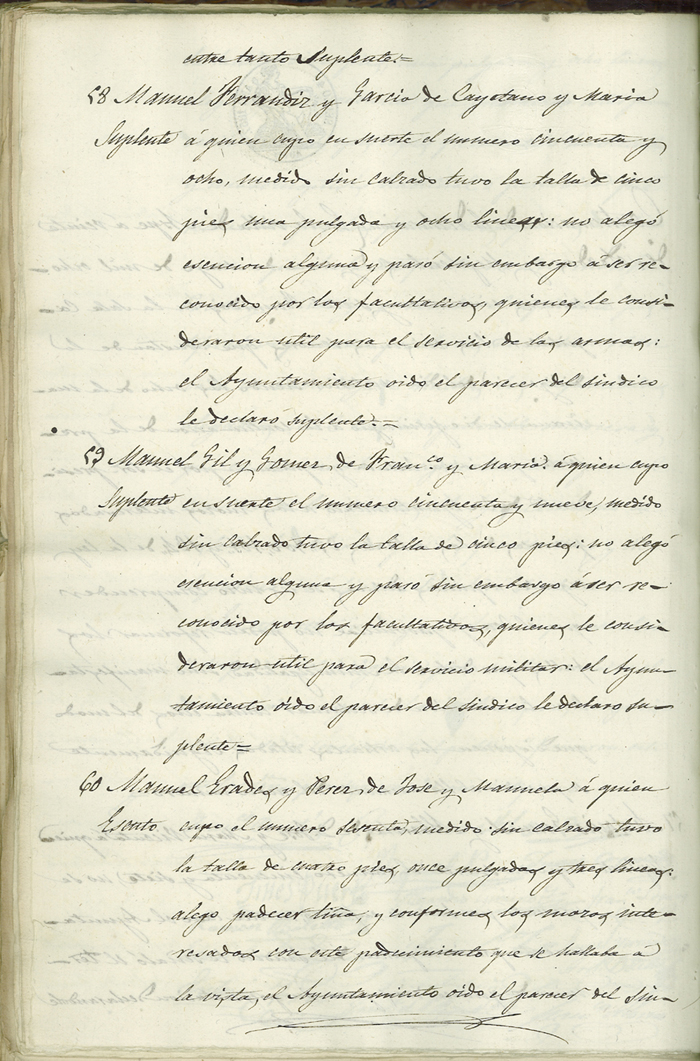 entre tanto Suplente.=
58 Manuel Ferrandiz y Garcia de Cayetano y Maria
Suplente á quien cupo en suerte el numero cincuenta y
ocho, medido sin calzado tuvo la talla de cinco
pies una pulgada y ocho lineas: no alegó
esencion alguna y pasó sin embargo á ser re-
conocido por los facultativos, quienes le consi-
deraron util para el servicio de las armas:
el Ayuntamiento oido el parecer del sindico
le declaró suplente.=
59 Manuel Gil y Gomez de Fran.co y Maria. á quien cupo
Suplente en suerte el numero cincuenta y nueve, medido
sin calzado tuvo la talla de cinco pies: no alegó
esencion alguna y pasó sin embargo á ser re-
conocido por los facultativos, quienes le consi-
deraron util para el servicio militar: el Ayun-
tamiento oido el parecer del sindico le declaro su-
plente=
60 Manuel Erades y Perez de Jose y Manuela á quien
Esento cupo el numero sesenta, medido sin calzado tuvo
la talla de cuatro pies, once pulgadas y tres lineas:
alego padecer tiña, y conformes los mozos inte-
resados con este padecimiento que se hallaba á
la vista, el Ayuntamiento oido el parecer del sin-